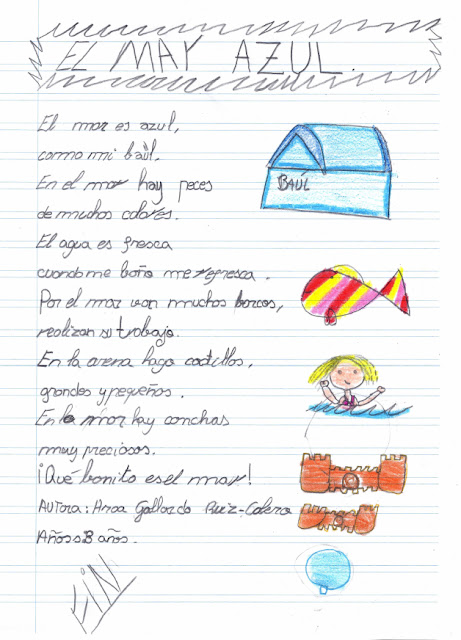 EL MAY AZUL.
El mar es azul,
como mi baúl.
BAÚL
En el mar hay peces
de muchos colores.
El agua es fresca
cuando me baño me refresca.
Por el mar van muchos barcos,
realizan su trabajo.
En la arena hago castillos,
grandes y pequeños.
En la mar hay conchas
muy preciosas.
¡Qué bonito es el mar!
AUTORA: Anoa Gallardo Ruiz-Calero
Años: 8 años.
FIN